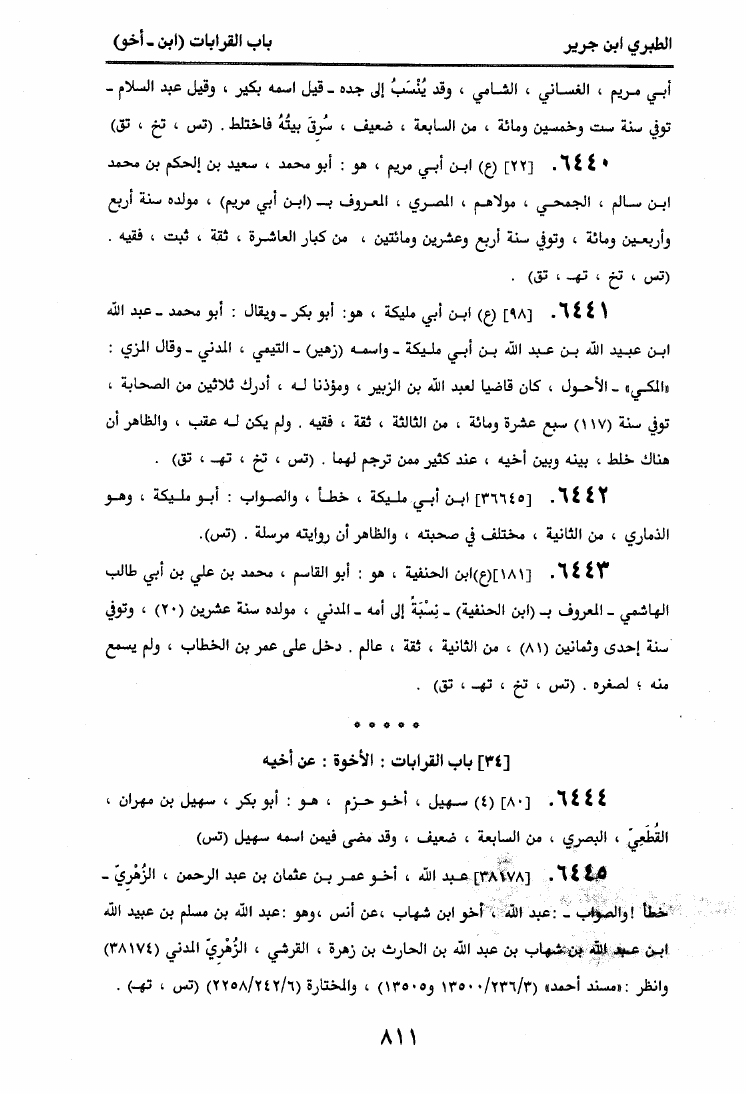 الطبري ابن جرير باب القرابات (ابن ـ أخو)
أبي مريم ، الغساني ، الشامي ، وقد يُنْسَبُ إلى جده ـ قيل اسمه بكير ، وقيل عبد السلام ـ
توفي سنة ست وخمسين ومائة ، من السابعة ، ضعيف ، سُرِقَ بيتُهُ فاختلط . (تس ، تخ ، تق)
٦٤٤٠. [٢٢] (ع) ابن أبي مريم ، هو : أبو محمد ، سعيد بن الحكم بن محمد
ابن سالم ، الجمحي ، مولاهم ، المصري ، المعروف بـ (ابن أبي مريم) ، مولده سنة أربع
وأربعين ومائة ، وتوفي سنة أربع وعشرين ومائتين ، من كبار العاشرة ، ثقة ، ثبت ، فقيه .
(تس ، تخ ، تهـ ، تق) .
٦٤٤١. [٩٨] (ع) ابن أبي مليكة ، هو: أبو بكر ـ ويقال : أبو محمد ـ عبد الله
ابن عبيد الله بن عبد الله بن أبي مليكة ـ واسمه (زهير) ـ التيمي ، المدني ـ وقال المزي :
«المكي» ـ الأحول ، كان قاضيا لعبد الله بن الزبير ، ومؤذنا له ، أدرك ثلاثين من الصحابة ،
توفي سنة (١١٧) سبع عشرة ومائة ، من الثالثة ، ثقة ، فقيه . ولم يكن له عقب ، والظاهر أن
هناك خلط ، بينه وبين أخيه ، عند كثير ممن ترجم لهما . (تس ، تخ ، تهـ ، تق) .
٦٤٤٢. [٣٦٦٤٥] ابن أبي مليكة ، خطأ ، والصواب : أبو مليكة ، وهو
الذماري ، من الثانية ، مختلف في صحبته ، والظاهر أن روايته مرسلة . (تس).
٦٤٤٣. [١٨١](ع)ابن الحنفية ، هو : أبو القاسم ، محمد بن علي بن أبي طالب
الهاشمي ـ المعروف بـ (ابن الحنفية) ـ نِسْبَةً إلى أمه ـ المدني ، مولده سنة عشرين (٢٠) ، وتوفي
سنة إحدى وثمانين (٨١) ، من الثانية ، ثقة ، عالم . دخل على عمر بن الخطاب ، ولم يسمع
منه ؛ لصغره . (تس ، تخ ، تهـ ، تق) .
* * * * *
[٣٤] باب القرابات : الأخوة : عن أخيه
٦٤٤٤. [٨٠] (٤) سهيل ، أخو حزم ، هو : أبو بكر ، سهيل بن مهران ،
القُطَعِيّ ، البصري ، من السابعة ، ضعيف ، وقد مضى فيمن اسمه سهيل (تس)
٦٤٤٥. [٣٨١٧٨] عبد الله ، أخو عمر بن عثمان بن عبد الرحمن ، الزُهْريّ ـ
خطأ !والصواب ـ :عبد الله ، أخو ابن شهاب ،عن أنس ،وهو :عبد الله بن مسلم بن عبيد الله
ابن عبد الله بن شهاب بن عبد الله بن الحارث بن زهرة ، القرشي ، الزُهْريّ المدني (٣٨١٧٤)
وانظر :«مسند أحمد» (١٣٥٠٠/٢٣٦/٣ و١٣٥٠٥) ، والمختارة (٢٢٥٨/٢٤٢/٦) (تس ، تهـ) .
٨١١